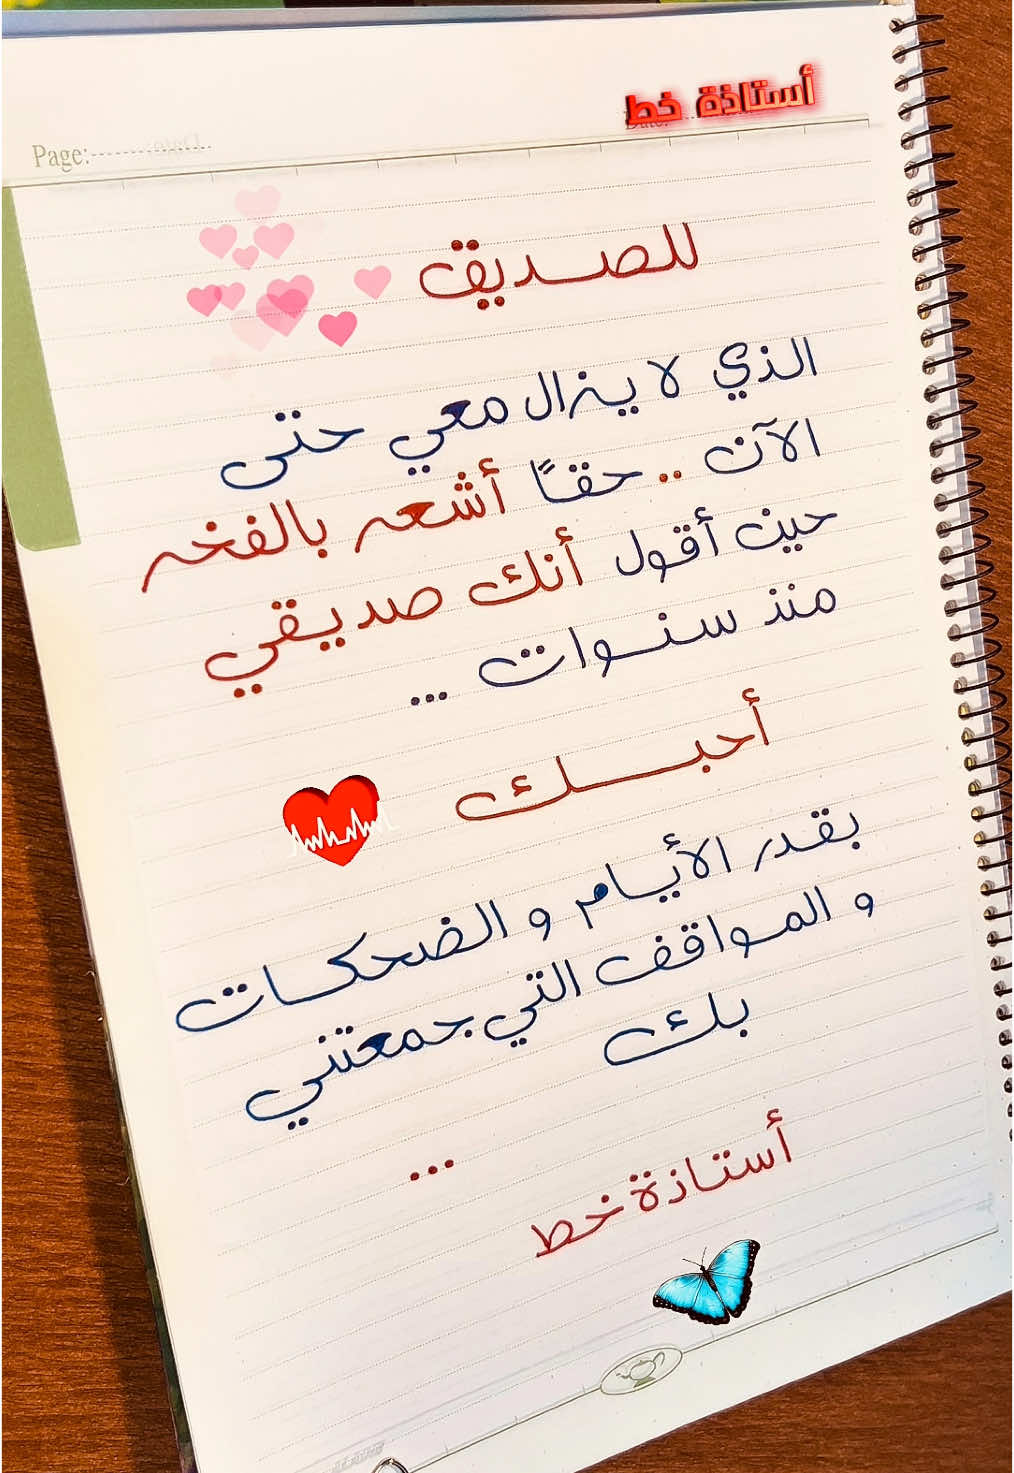 أستاذة خط
Page:
Date:
للصديق
الذي لا يزال معي حتى
الآن .. حقاً أشعر بالفخر
حين أقول أنك صديقي
منذ سنوات ...
أحبك
بقدر الأيام و الضحكات
و المواقف التي جمعتني
بك
...
أستاذة خط